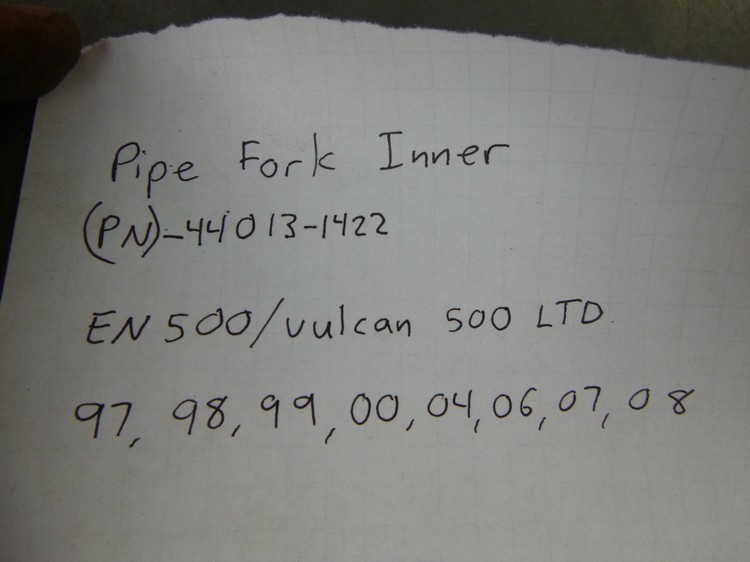 Pipe Fork Inner
(PN)-44013-1422
EN500/vulcan 500 LTD
97, 98, 99, 00, 04, 06, 07, 08